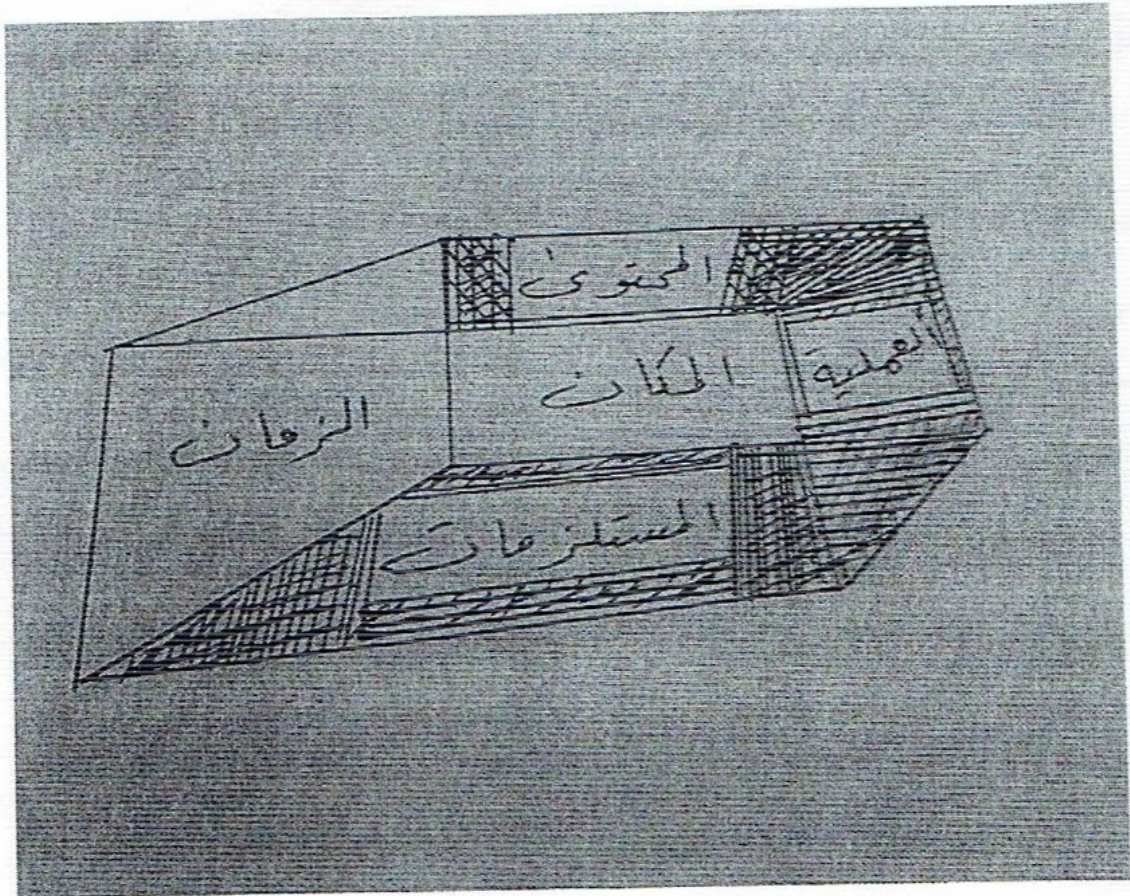 المحتوى
العملية
المكان
الزمان
المستلزمات